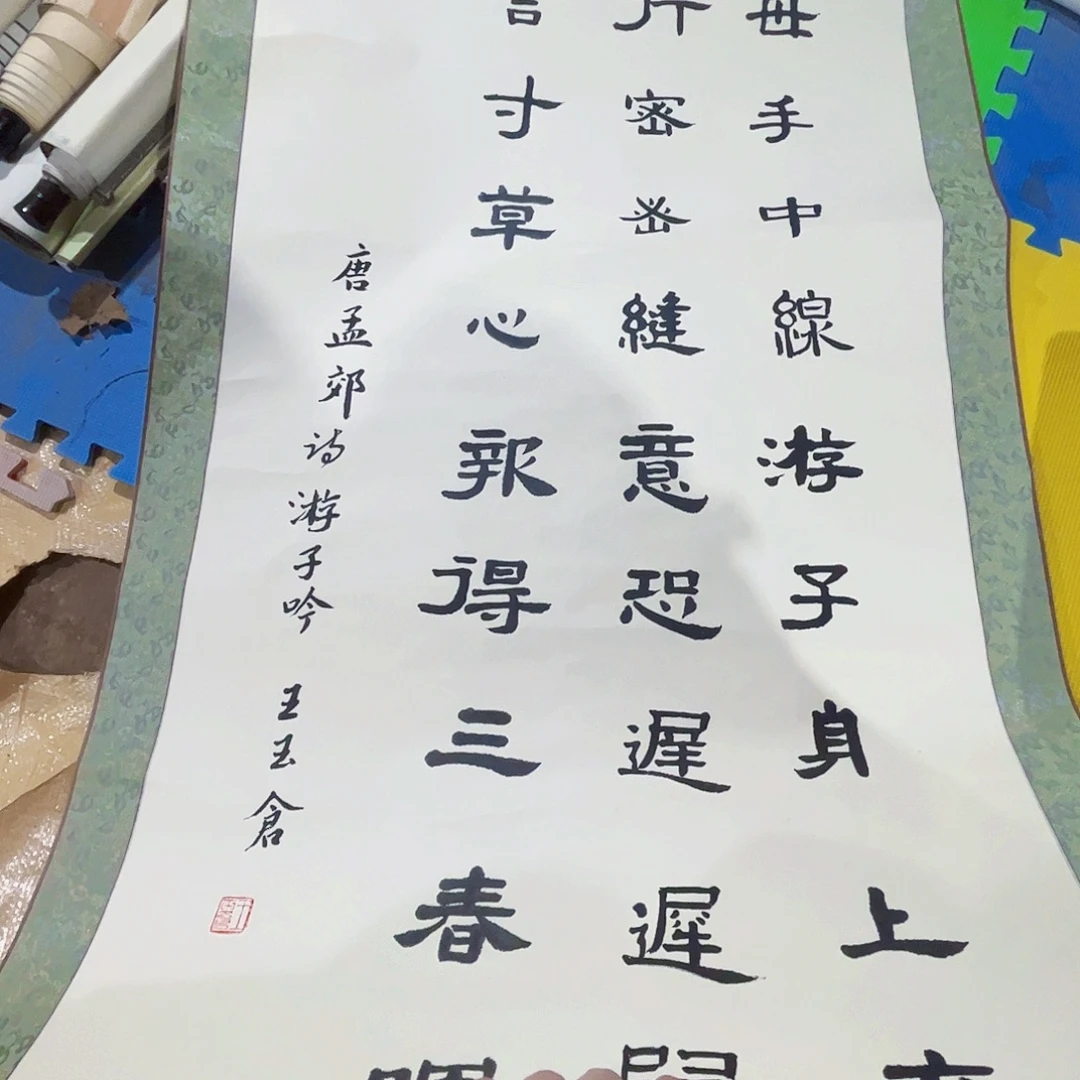 母手中線游子身上
行密密縫意恐遲遲
言寸草心報得三春
唐孟郊诗游子吟 王玉倉